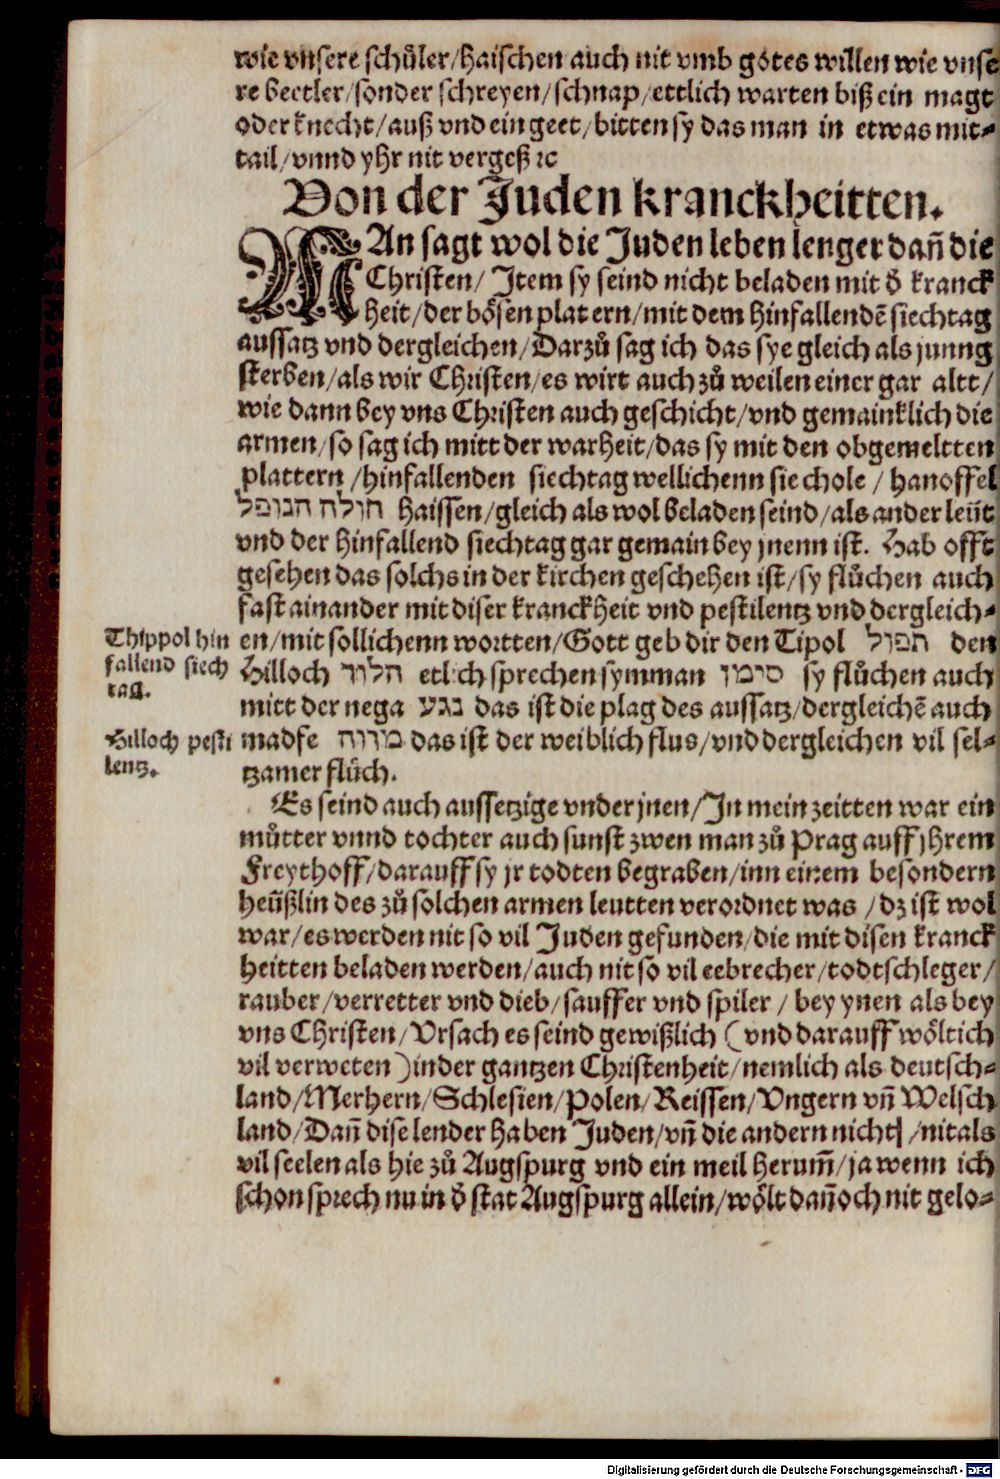 wie vnsere schůler/haischen auch nit vmb gotes willen wie vnse
re beetler/sonder schreyen/schnap/ettlich warten biß ein magt
oder knecht/auß vnd ein geet/bitten sy das man in etwas mit⸗
tail/vnnd yhr nit vergeß ꝛc
Von der Juden kranckheitten.
MAn sagt wol die Juden leben lenger dañ die
Christen/ Item sy seind nicht beladen mit ď kranck
heit/der bösen plat ern/mit dem hinfallendē siechtag
aussatz vnd dergleichen/Darzů sag ich das sye gleich als junng
sterben/als wir Christen/es wirt auch zů weilen einer gar altt/
wie dann bey vns Christen auch geschicht/vnd gemainklich die
armen/so sag ich mitt der warheit/das sy mit den obgemeltten
plattern /hinfallenden siechtag wellichenn sie chole / hanoffel
חולה הנופל haissen/gleich als wol beladen seind/als ander leüt
vnd der hinfallend siechtag gar gemain bey jnenn ist. Hab offt
gesehen das solchs in der kirchen geschehen ist/sy flůchen auch
fast ainander mit diser kranckheit vnd pestilentz vnd dergleich⸗
Thippol hin
fallend siech
tag.
en/mit sollichenn wortten/Gott geb dir den Tipol הפול den
Hilloch הלוך etlich sprechen symman סימן sy flůchen auch
mitt der nega נגע das ist die plag des aussatz/dergleichē auch
Hilloch pesti
lentz.
madfe מדוה das ist der weiblich flus/vnd dergleichen vil sel⸗
tzamer flůch.
Es seind auch aussetzige vnder jnen/In mein zeitten war ein
můtter vnnd tochter auch sunst zwen man zů Prag auff jhrem
Freythoff/darauff sy jr todten begraben/inn einem besondern
heüßlin des zů solchen armen leutten verordnet was /dz ist wol
war/es werden nit so vil Juden gefunden/die mit disen kranck
heitten beladen werden/auch nit so vil eebrecher/todtschleger/
rauber/verretter vnd dieb/sauffer vnd spiler / bey ynen als bey
vns Christen/Vrsach es seind gewißlich (vnd darauff wöltich
vil verweten) in der gantzen Christenheit/nemlich als deutsch⸗
land/Merhern/Schlesien/Polen/Reissen/Vngern vñ Welsch
land/Dañ dise lender haben Juden/vñ die andern nicht/nit als
vil seelen als hie zů Augspurg vnd ein meil herum̃/ja wenn ich
schon sprech nu in ď stat Augspurg allein/wölt dañoch nit gelo⸗
Digitalisierung gefördert durch die Deutsche Forschungsgemeinschaft - DFG